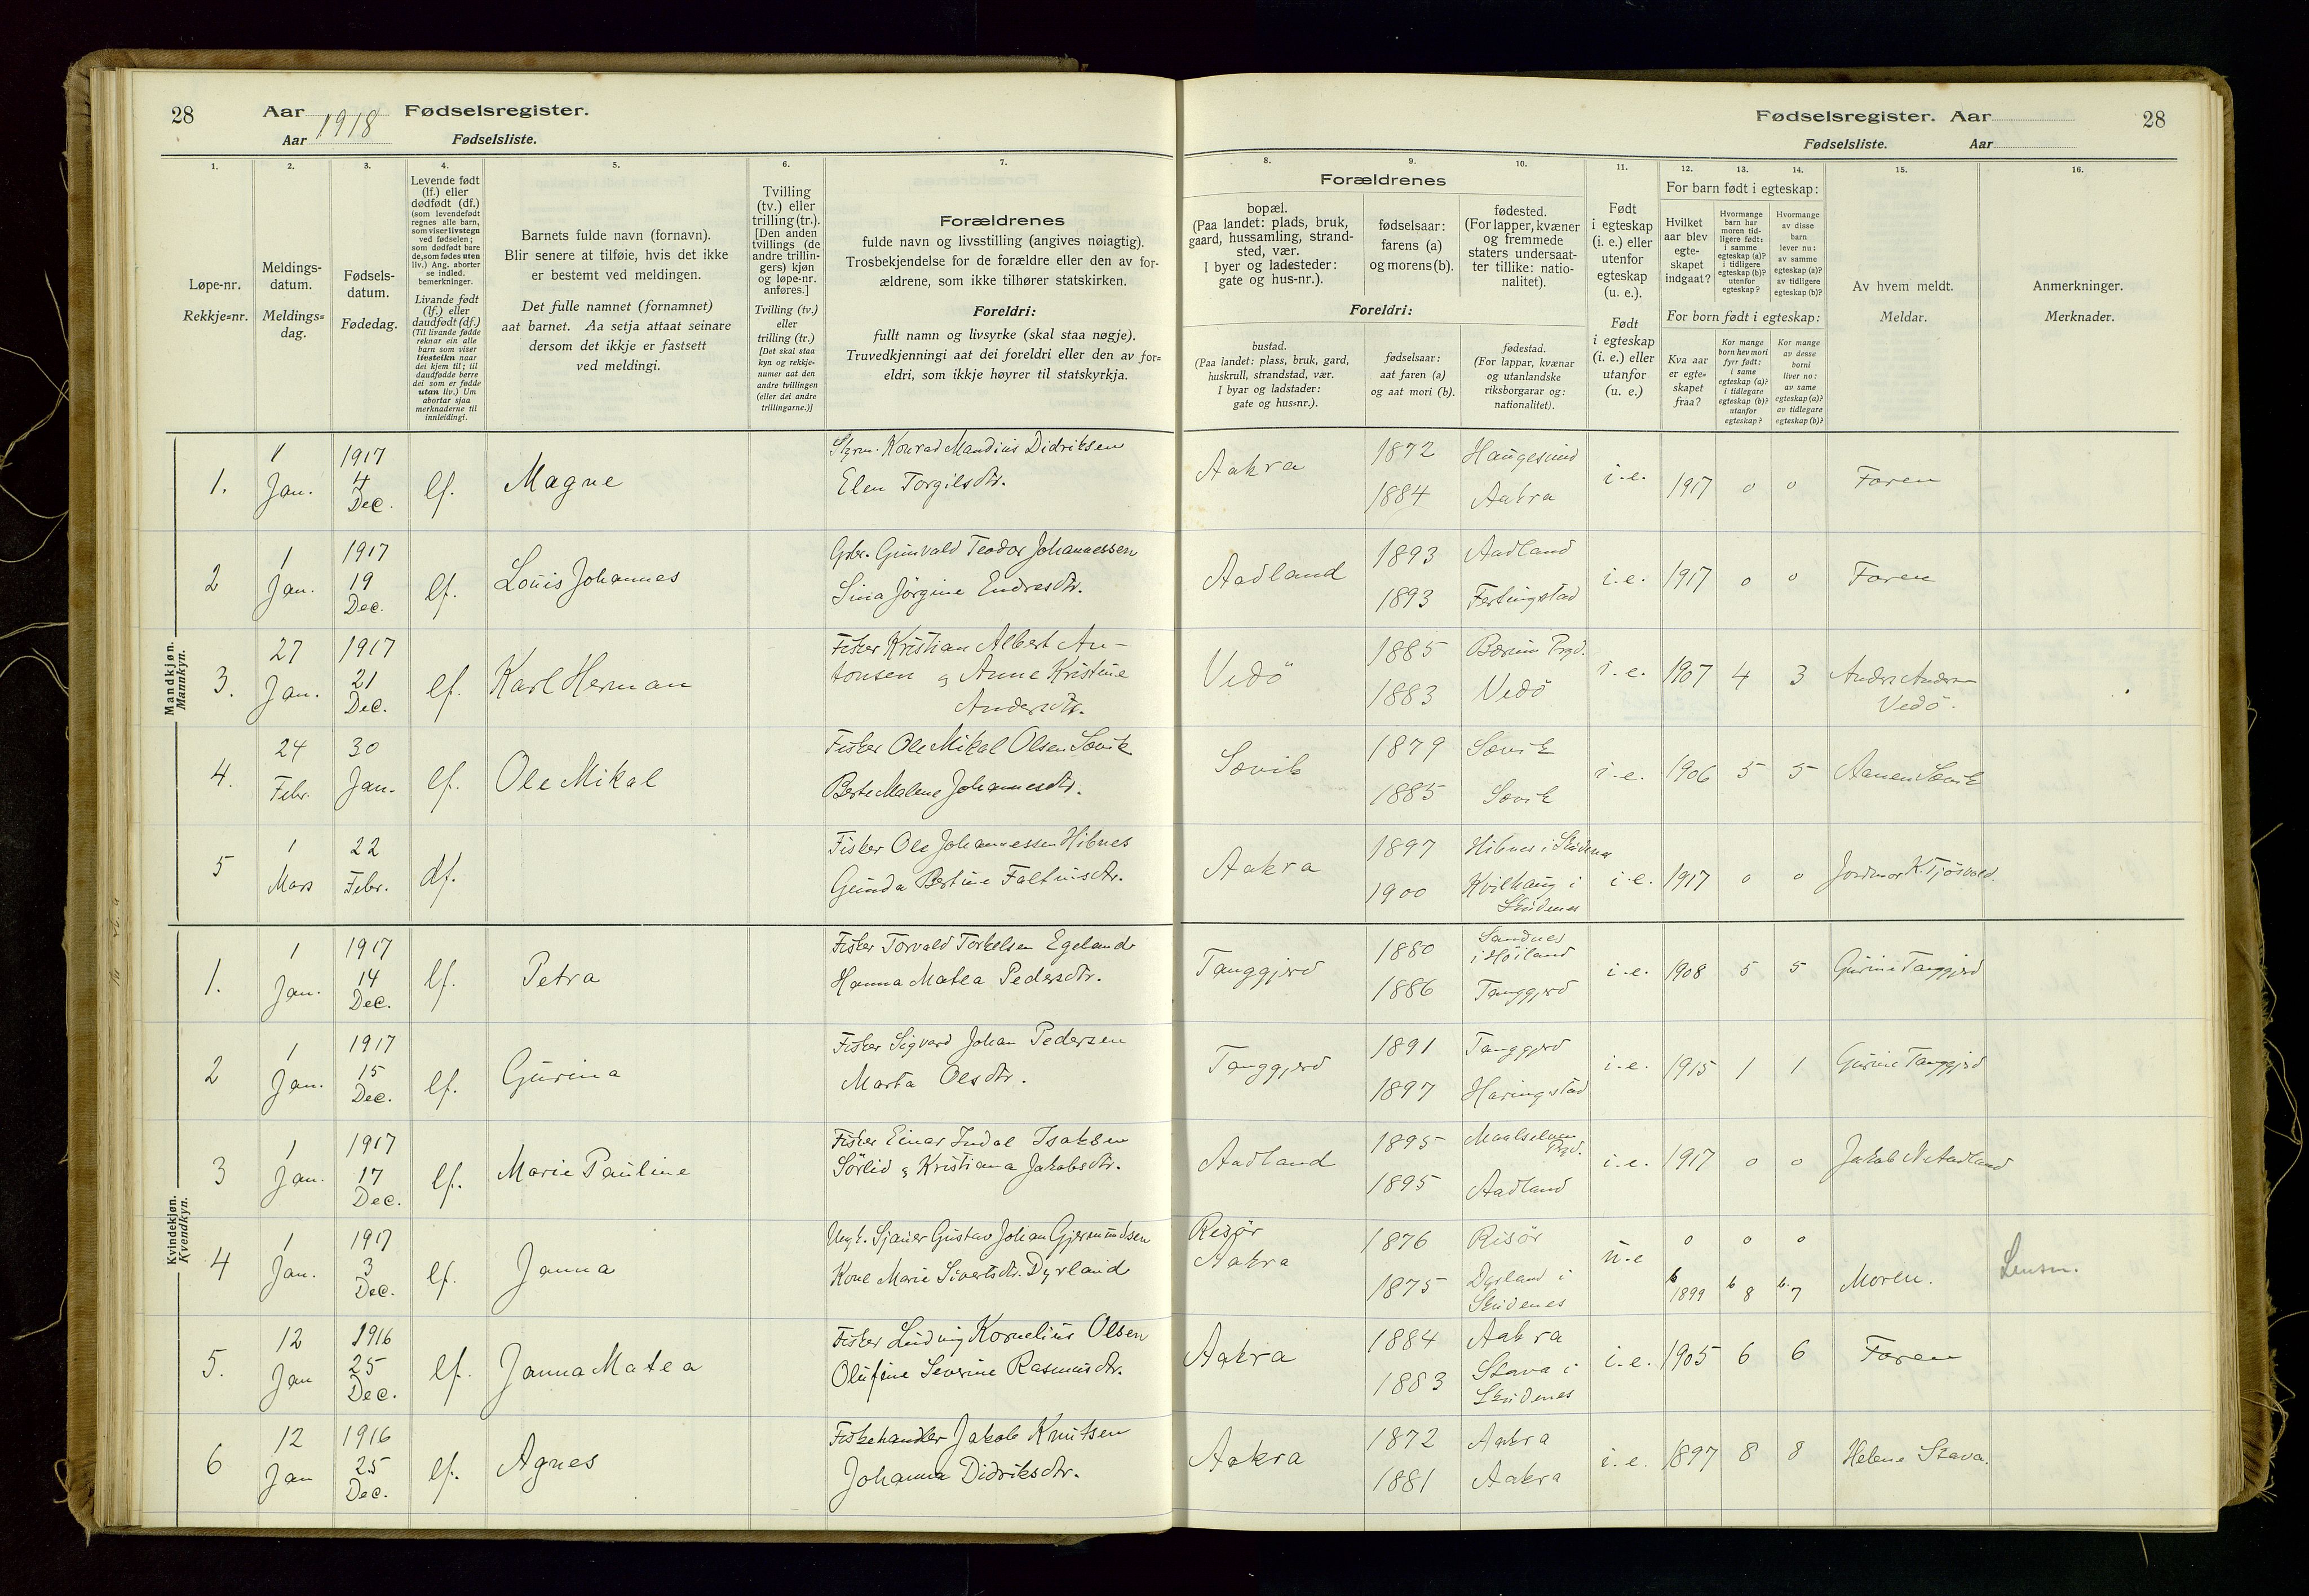 28 Aar 1918 Fødselsregister.
Aar Fødselsliste.
Fødselsregister. Aar 28
Fødselsliste. Aar
1. 2. 3. 4. 5. 6. 7. 8. 9. 10. 11. 12. 13. 14. 15. 16.
Løpe-nr.
Rekkje=nr.
Meldings-
datum.
Meldings=
dag.
Fødsels-
datum.
Fødedag.
Levende født
(lf.) eller
dødfødt (df.)
(som levendefødt
regnes alle barn,
som viser livstegn
ved fødselen;
som dødfødt bare
de, som fødes uten
liv.) Ang. aborter
se indled.
bemerkninger.
Livande født
(lf.) eller
daudfødt (df.)
(Til livande fødde
reknar ein alle
barn som viser
livsteikn naar
dei kjem til; til
daudfødde berre
dei som er fødde
utan liv.) Um
abortar sjaa
merknaderne til
innleidingi.
Barnets fulde navn (fornavn).
Blir senere at tilføie, hvis det ikke
er bestemt ved meldingen.
Det fulle namnet (fornamnet)
aat barnet. Aa setja attaat seinare
dersom det ikkje er fastsett
ved meldingi.
Tvilling
(tv.) eller
trilling (tr.).
[Den anden
tvillings (de
andre trillin-
gers) kjøn
og løpe-nr.
anføres.]
Tvilling (tv.)
eller
trilling (tr.)
[Det skal staa
kyn og rekkje-
numer aat den
andre tvillingen
(eller dei andre
trillingarne.)]
Forældrenes
fulde navn og livsstilling (angives nøiagtig).
Trosbekjendelse for de forældre eller den av for-
ældrene, som ikke tilhører statskirken.
Foreldri:
fullt namn og livsyrke (skal staa nøgje).
Truvedkjenningi aat dei foreldri eller den av for=
eldri, som ikkje høyrer til statskyrkja.
Forældrenes
bopæl.
(Paa landet: plads, bruk,
gaard, hussamling, strand-
sted, vær.
I byer og ladesteder:
gate og hus-nr.).
fødselsaar:
farens (a)
og morens (b).
fødested.
(For lapper, kvæner
og fremmede
staters undersaat-
ter tillike: natio-
nalitet).
Foreldri:
bustad.
(Paa landet: plass, bruk, gard,
huskrull, strandstad, vær.
I byar og ladstader:
gate og hus=nr.).
fødselsaar:
aat faren (a)
og aat mori (b).
fødestad.
(For lappar, kvænar
og utanlandske
riksborgarar og:
nationalitet).
Født
i egteskap
(i. e.) eller
utenfor
egteskap
(u. e.).
Født
i egteskap
(i. e.) eller
utanfor
(u. e.)
For barn født i egteskap:
Hvilket
aar blev
egte-
skapet
indgaat?
Hvormange
barn har
moren tid-
ligere født:
i samme
egteskap (a)?
i tidligere
egteskap (b)?
utenfor
egteskap?
Hvormange
av disse
barn
lever nu:
av samme
egteskap (a)?
av tidligere
egteskap (b)?
For born født i egteskap:
Kva aar
er egte=
skapet
fraa?
Kor mange
born hev mori
fyrr født:
i same
egteskap (a)?
i tidlegare
egteskap (b)?
utanfor
egteskap?
Kor mange
av desse
borni
liver no:
av same
egteskap (a)?
av tidlegare
egteskap (b)?
Av hvem meldt.
Meldar.
Anmerkninger.
Merknader.
Mandkjøn.
Mannkyn.
1. 1 Jan. 1917 4 Dec. lf. Magne Konrad Mandius Didriksen
Elen Torgilsdtr. Aakra 1872 Haugesund
1884 Aakra i.e. 1917 0 0 Faren
2 1 Jan. 1917 19 Dec. lf. Louis Johannes Gbr. Gunvald Teodor Johannessen
Sina Jørgine Endresdtr. Aadland 1893 Aadland
1893 Ferkingstad i.e. 1917 0 0 Faren
3. 27 Jan. 1917 21 Dec. lf. Karl Herman Fisker Kristian Albert An-
tonsen & Anne Kristine
Andersdtr. Vedö 1885 Bærum Prgd.
1883 Vedö i.e. 1907 4 3
Vedö.
4. 24 Febr. 30 Jan. lf. Ole Mikal Fisker Ole Mikal Olsen Sævik
Berte Malene Johannesdtr. Sævik 1879 Sævik
1885 Sævik i.e. 1906 5 5 Aanen Sævik
5 1 Mars 22 Febr. df. Fisker Ole Johannessen Hibnes
Gunda Bertine Faltinsdtr. Aakra 1897 Hibnes i Skudenes
1900 Kvilhaug i
Skudenes i.e. 1917 0 0 K. Tjösvold.
Kvindekjøn.
Kvendkyn.
1. 1 Jan. 1917 14 Dec. lf. Petra Fisker Torvald Torkelsen Egeland
Hanna Matea Pedersdtr. Tanggjerd 1880 Sandnes
i Höiland
1886 Tanggjerd i.e. 1908 5 5 Gurine Tanggjerd
2 1 Jan. 1917 15 Dec. lf. Gurina Fisker Sigvard Johan Pedersen
Marta Olsdtr. Tanggjerd 1891 Tanggjerd
1897 Haringstad i.e. 1915 1 1 Gurine Tanggjerd
3 1 Jan. 1917 17 Dec. lf. Marie Pauline Fisker Einar Indal Isaksen
Sörlid & Kristiana Jakobsdtr. Aadland 1895 Maalselven
Prgd.
1895 Aadland i.e. 1917 0 0 Jakob N Aadland
4 1 Jan. 1917 3 Dec. lf. Janna Ungk. Sjauer Gustav Johan Gjermundsen
Kone Marie Sivertsdtr. Dyrland Risør
Aakra 1876 Risør
1875 Dyrland i
Skudenes u.e 0 0 0
b 1899 b 8 b. 7 Moren. Lensm.
5. 12 Jan 1916 25 Dec. lf. Janna Matea Fisker Ludvig Kornelius Olsen
Olufine Severine Rasmusdtr. Aakra 1884 Aakra
1883 Stava i
Skudenes i.e. 1905 6 6 Faren
6 12 Jan 1916 25 Dec. lf. Agnes Fiskehandler Jakob Knutsen
Johanna Didriksdtr. Aakra 1872 Aakra
1881 Aakra i.e. 1897 8 8 Helene Stava.